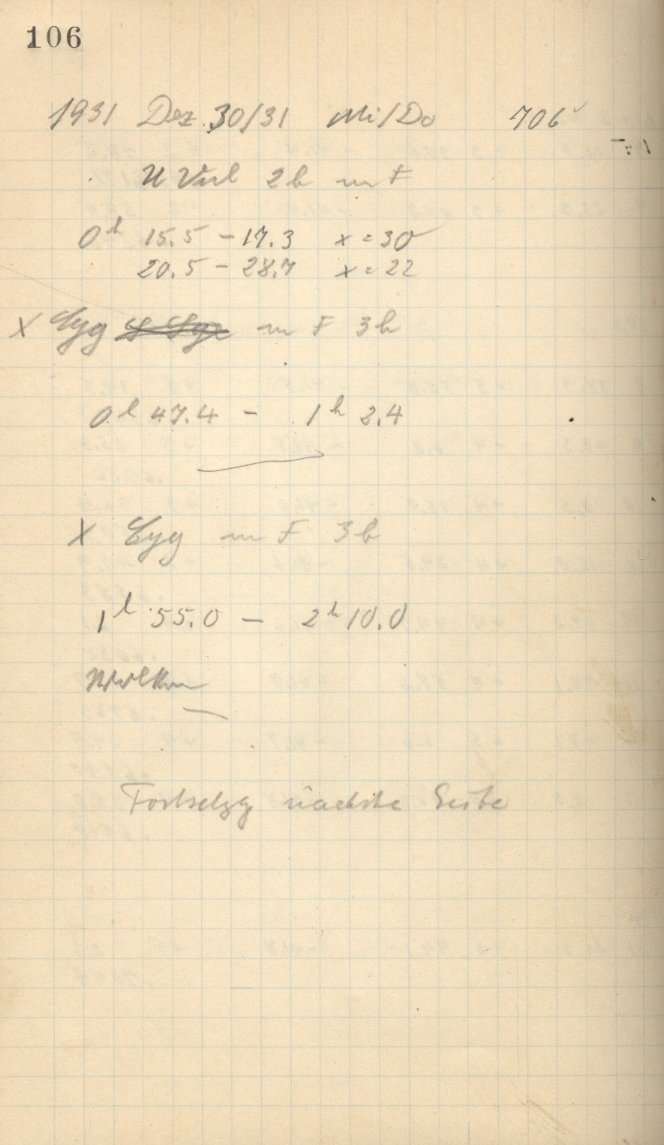 106
1931 Dez 30/31 Mi/Do 706
U Vul 2h m F
0h 15.5 – 17.3 x = 30
20.5 – 28.7 x = 22
X Cyg m F 3h
0h 47.4 – 1h 2.4
X Cyg m F 3h
1h 55.0 – 2h 10.0
Wolken
Fortsetzg nächste Seite